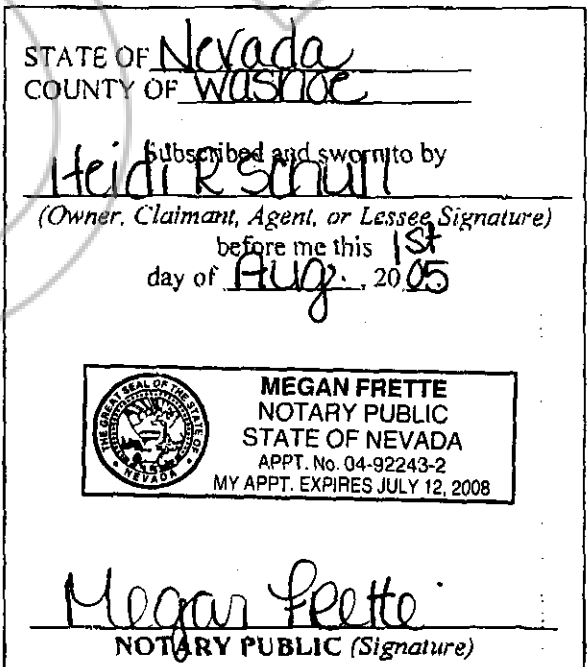 STATE OF Nevada
COUNTY OF Washoe
Subscribed and sworn to by
Heidi R Schull
(Owner, Claimant, Agent, or Lessee Signature)
before me this 1st
day of Aug., 2005
THE GREAT SEAL OF THE STATE OF NEVADA
MEGAN FRETTE
NOTARY PUBLIC
STATE OF NEVADA
APPT. No. 04-92243-2
MY APPT. EXPIRES JULY 12, 2008
Megan Frette
NOTARY PUBLIC (Signature)